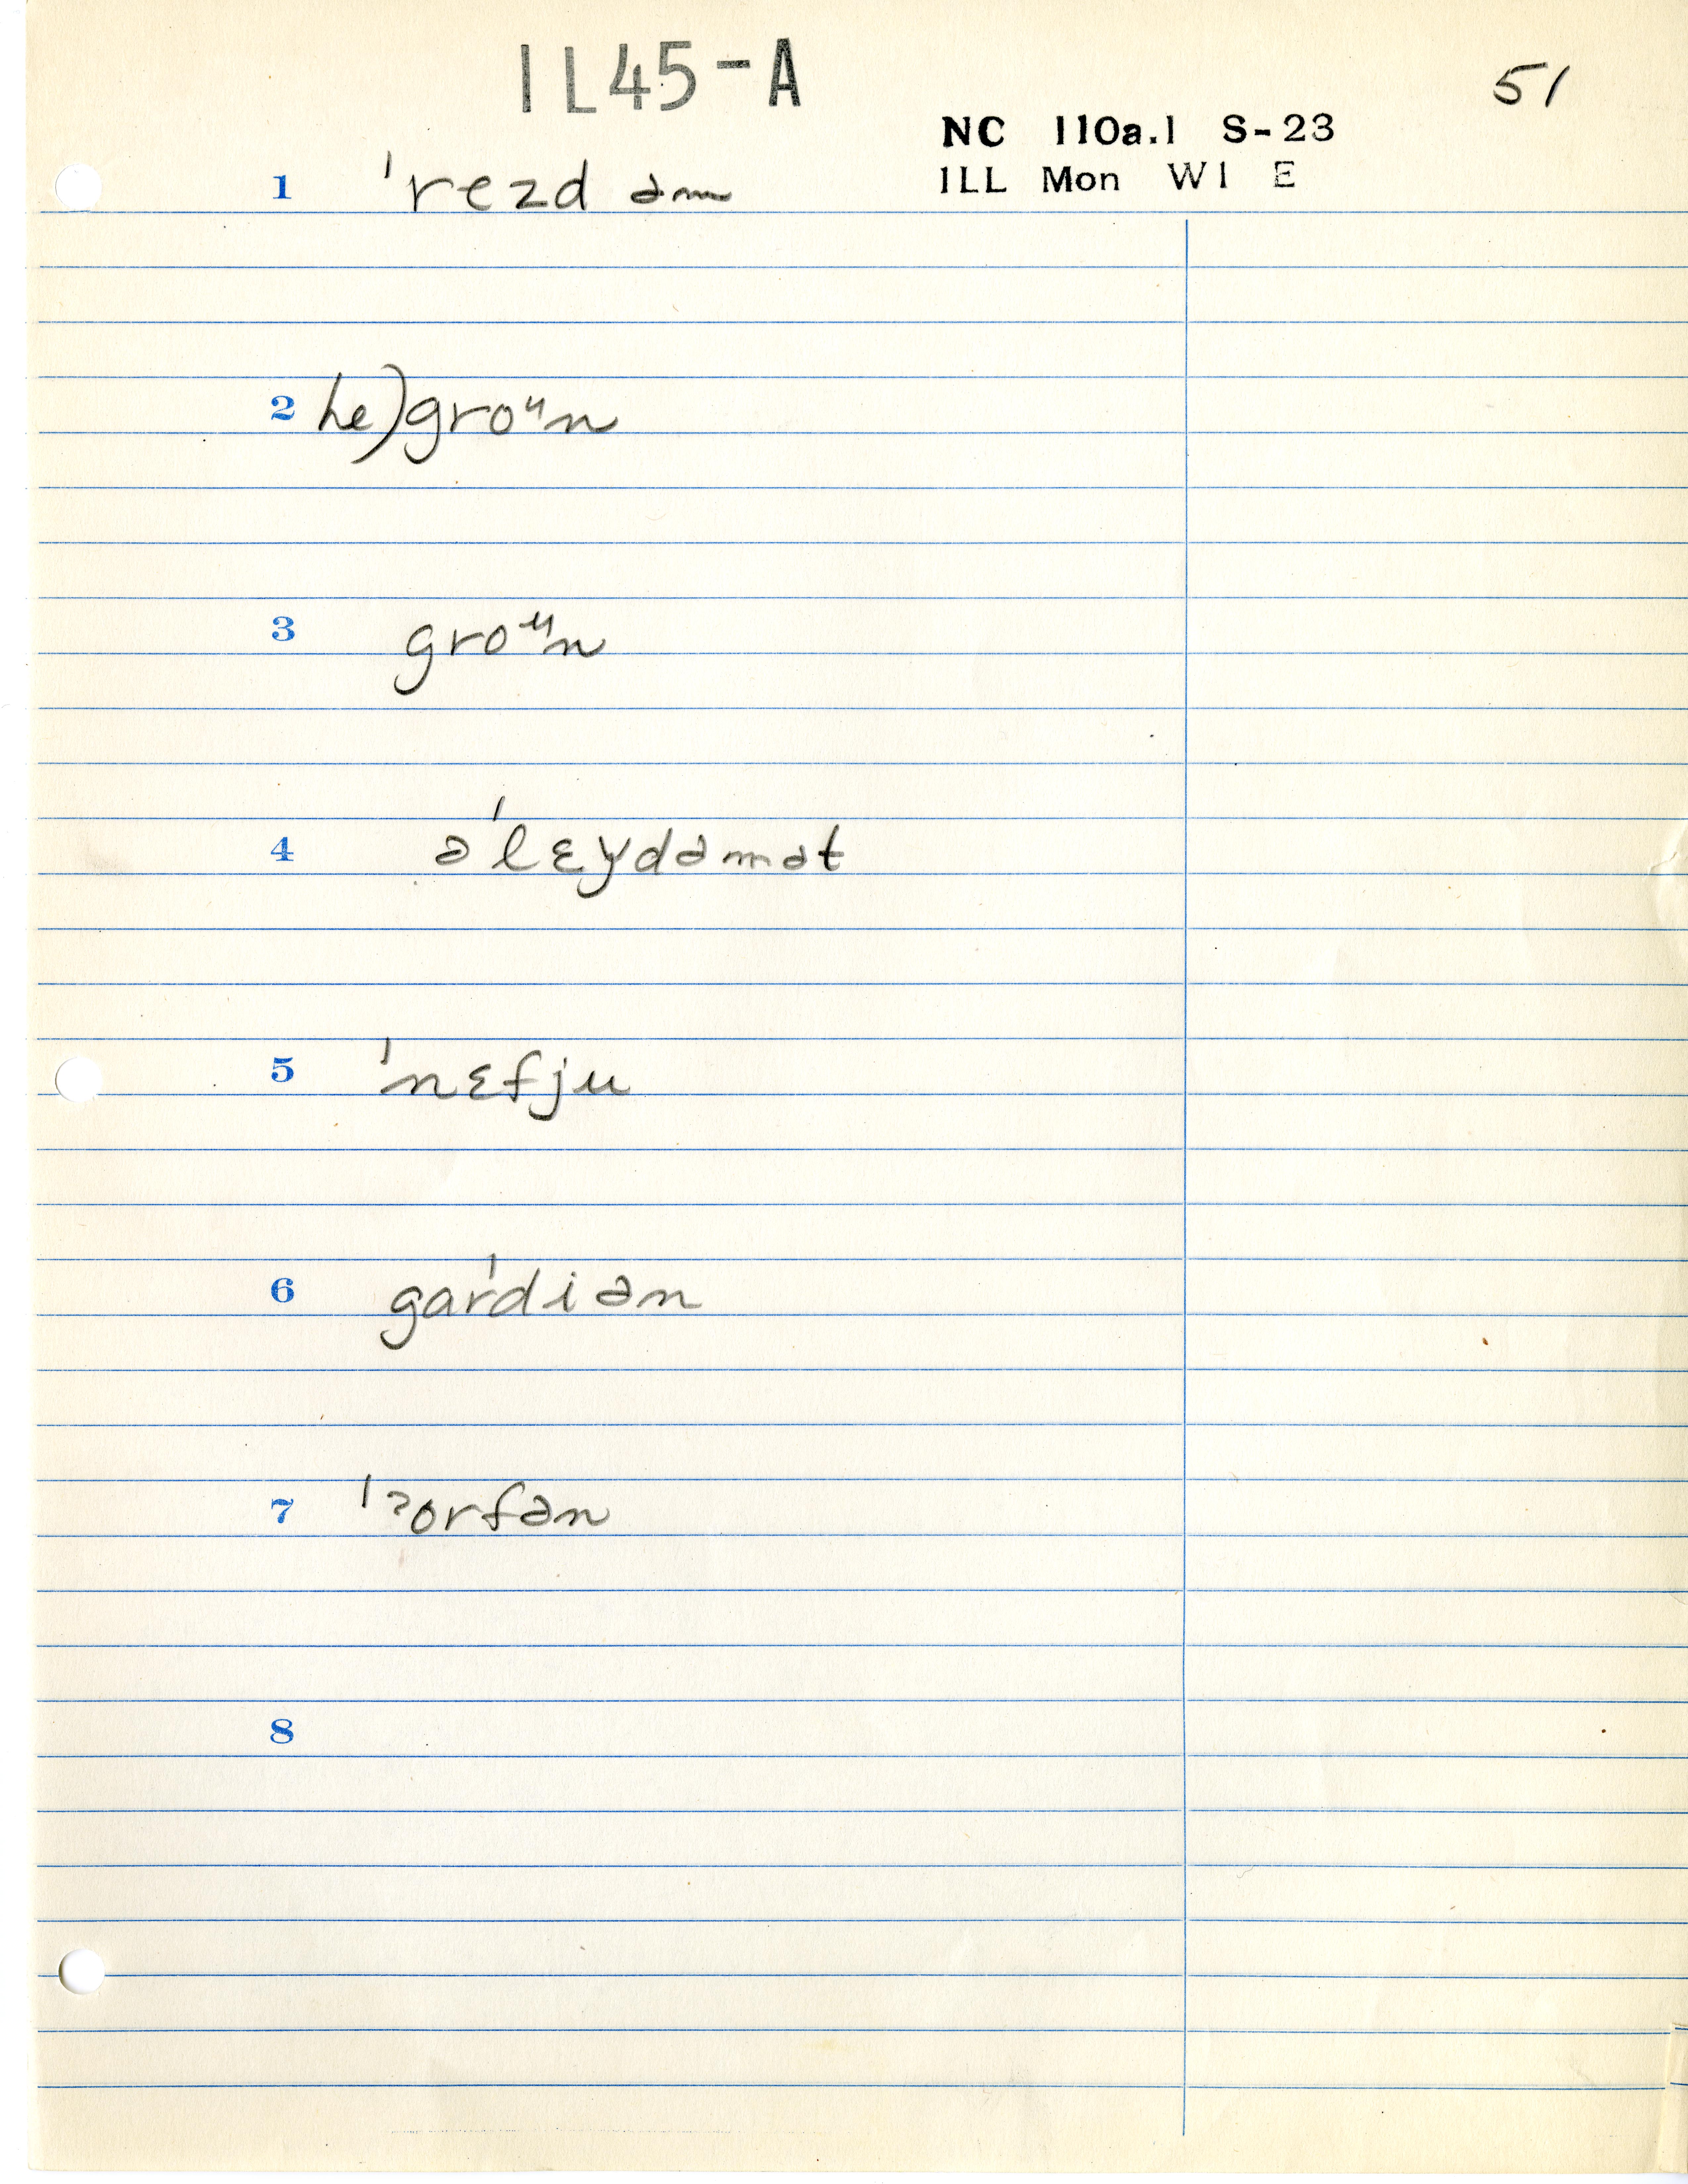 1L45-A
51
NC 110a.1 S-23
ILL Mon W1 E
1 ˈrezd əm
2 he)groᶸn
3 groᶸn
4 əˈlɛɣdəmət
5 ˈnɛfju
6 garˈdiən
7 ˈʔorfən
8